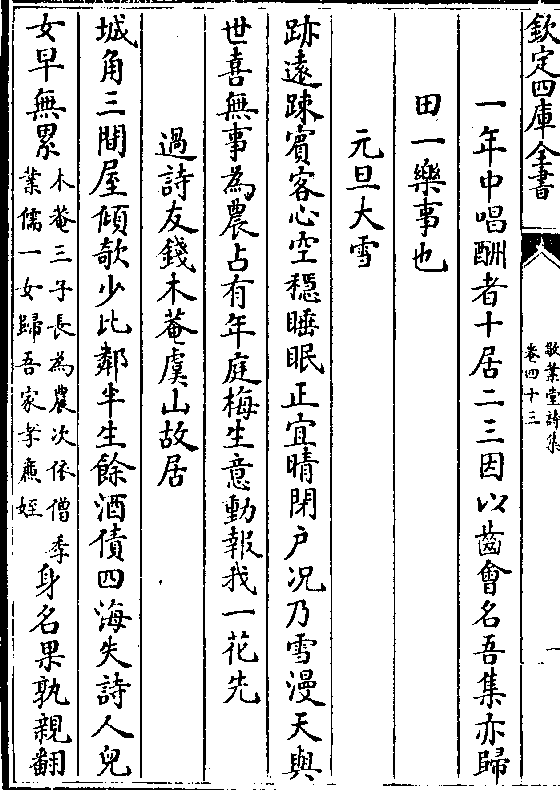 欽定四庫全書
敬業堂詩集
卷四十三
一
一年中唱酬者十居二三因以齒會名吾集亦歸
田一樂事也
元旦大雪
跡遠踈賓客心空穩睡眠正宜晴閉户况乃雪漫天與
世喜無事為農占有年庭梅生意動報我一花先
過詩友錢木菴虞山故居
城角三間屋傾欹少比鄰半生餘酒債四海失詩人兒
女早無累木菴三子長為農次依僧季
業儒一女歸吾家孝廉姪身名果孰親翻